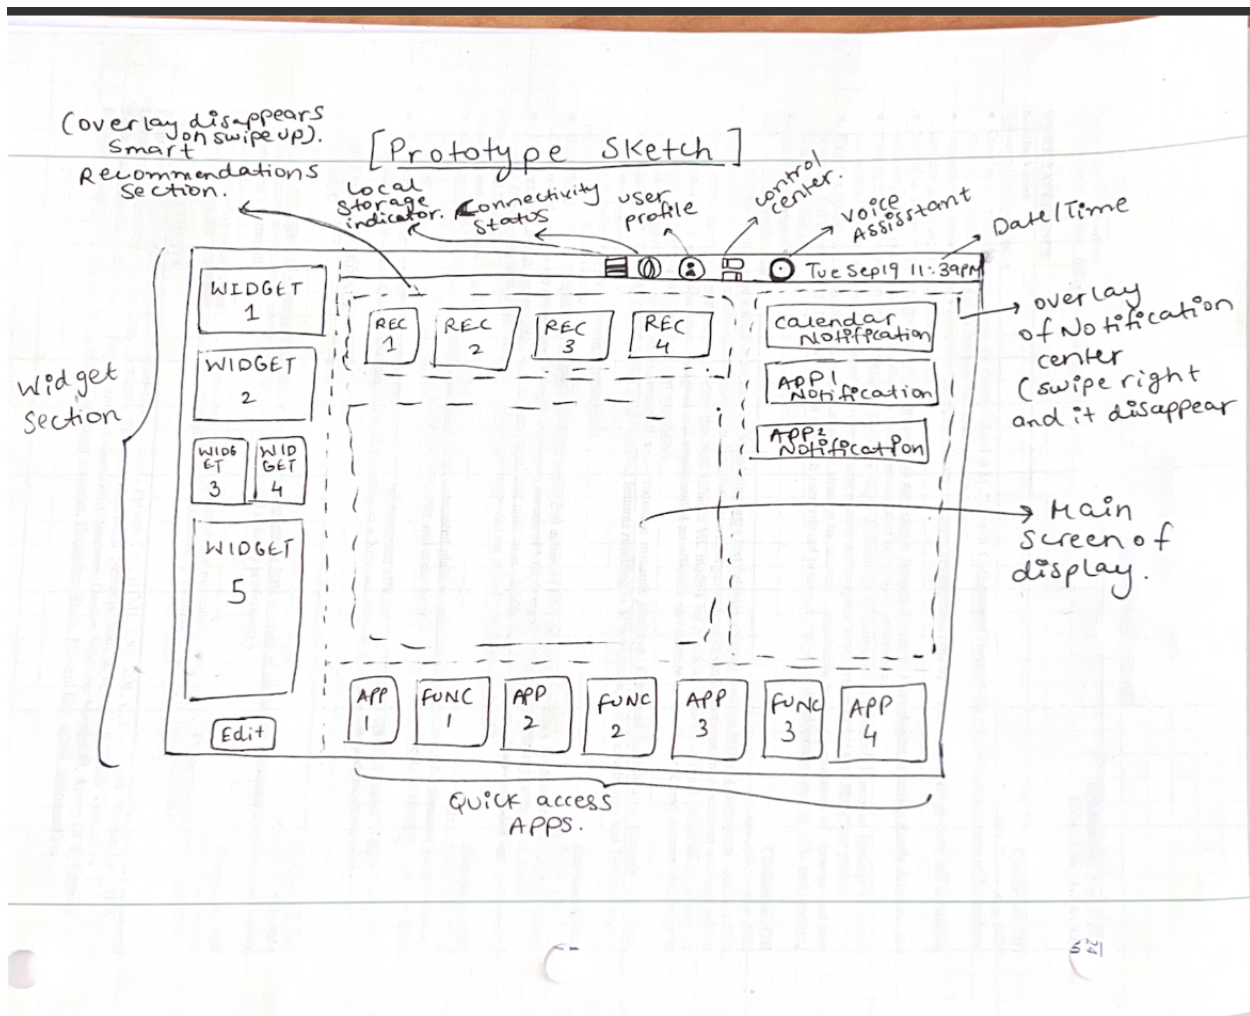 (overlay disappears
on swipe up).
Smart
Recommendations
Section.
[Prototype Sketch]
Local
storage
indicator.
Connectivity
Status
user
profile
control
center.
Voice
Assistant
Date/Time
Tue Sep 19 11:39PM
WIDGET
1
WIDGET
2
WIDG
ET
3
WID
GET
4
WIDGET
5
Edit
Widget
Section
REC
1
REC
2
REC
3
REC
4
Calendar
Notification
APP 1
Notification
APP 2
Notification
overlay
of Notification
center
(swipe right
and it disappear
Main
Screen of
display.
APP
1
FUNC
1
APP
2
FUNC
2
APP
3
FUNC
3
APP
4
Quick access
APPS.